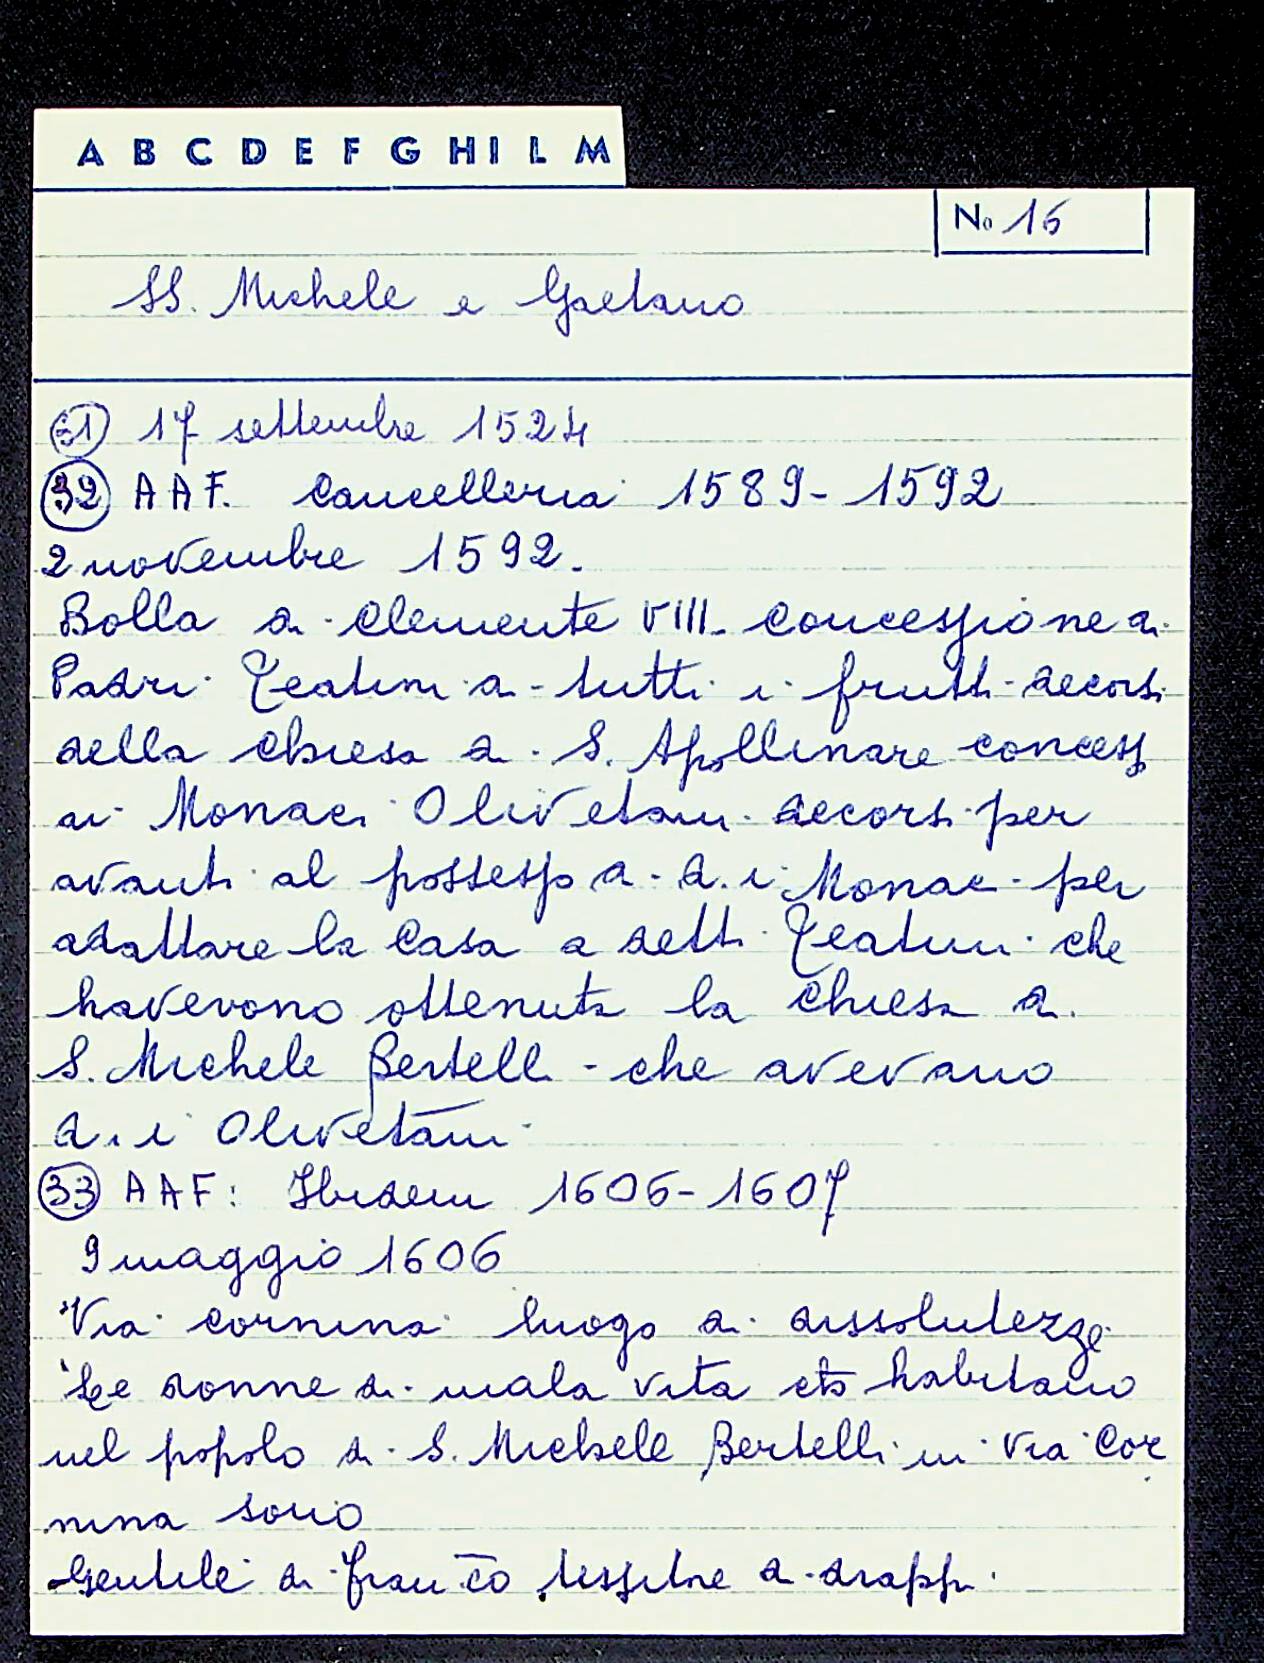 A B C D E F G H I L M
No 16
SS. Michele e Gaetano
31 17 settembre 1524
32 AAF. Cancelleria 1589-1592
2 novembre 1592.
Bolla di Clemente VIII. concessione ai
Padri Teatini di tutti i frutti decorsi
della chiesa di S. Apollinare concessi
ai Monaci Olivetani decorsi per
avanti al possesso di d.i Monaci per
adattare la Casa a detti Teatini che
havevono ottenuta la chiesa di
S. Michele Bertelli - che avevano
d.i Olivetani
33 AAF: Ibidem 1606-1607
9 maggio 1606
Via cornina luogo di dissolutezze
Le donne di mala vita che habitano
nel popolo di S. Michele Bertelli in Via Cor
nina sono
Gentile di Franco tessitore di drappi